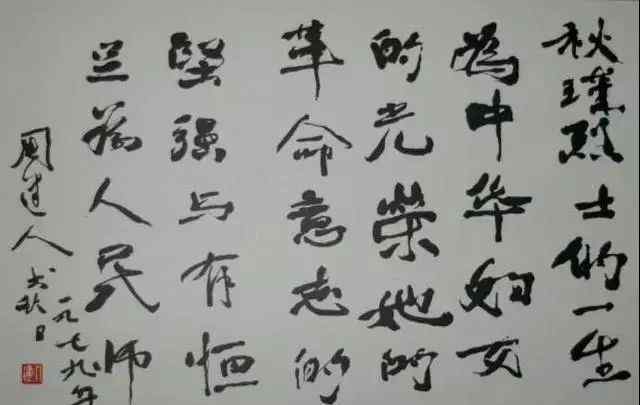 秋瑾烈士的一生
為中华妇女
的光榮她的
革命意志的
堅强与有恒
为人民师
周建人书
一九七九年
秋日